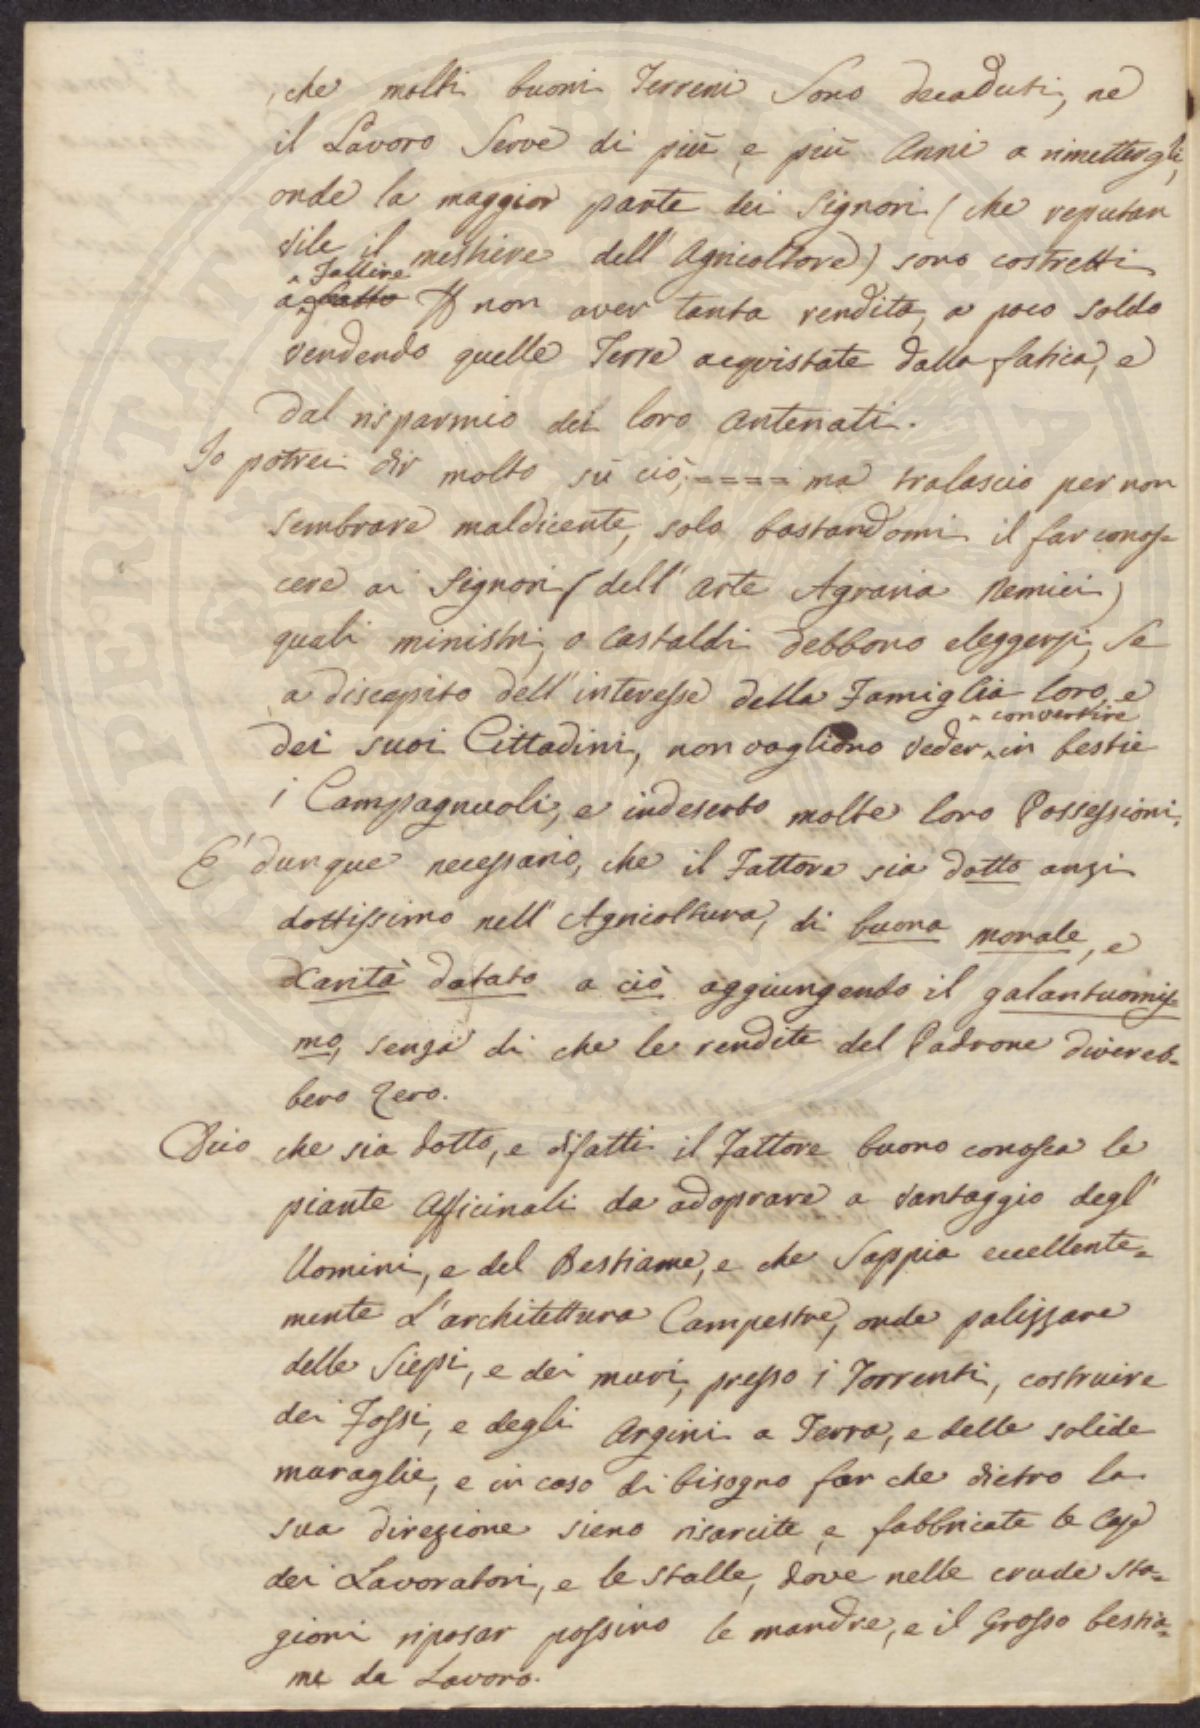 che molti buoni Terreni Sono decaduti, nè
il Lavoro Serve di più, e più Anni a rimettergli,
onde la maggior parte dei Signori (che reputan
vile il mestiere dell'Agricoltore) sono costretti
a Fallire p non aver tanta rendita, a poco soldo
vendendo quelle Terre acquistate dalla fatica, e
dal risparmio dei loro Antenati.
Io potrei dir molto sù ciò, ==== ma tralascio per non
sembrare maldicente, solo bastandomi il far conos=
cere ai Signori (dell'Arte Agraria Nemici)
quali ministri, o Castaldi debbono eleggersi, Se
a discapito dell'interesse della Famiglia loro, e
dei suoi Cittadini, non vogliono veder convertire in bestie
i Campagnuoli, e in deserto molte loro Possessioni.
E' dunque necessario, che il Fattore sia dotto anzi
dottissimo nell'Agricoltura, di buona morale, e
Carità dotato a ciò aggiungendo il galantuomis=
mo, senza di che le rendite del Padrone divereb=
bero Zero.
Dico che sia dotto, e difatti il Fattore buono conosca le
piante Officinali da adoprare a vantaggio degl'
Uomini, e del Bestiame, e che Sappia eccellente=
mente L'architettura Campestre, onde palizzare
delle Siepi, e dei muri, presso i Torrenti, costruire
dei Fossi, e degli Argini a Terra, e delle solide
muraglie, e in caso di bisogno far che dietro la
sua direzione sieno risarcite, e fabbricate le Case
dei Lavoratori, e le stalle, dove nelle crude sta=
gioni riposar possino le mandre, e il Grosso bestia=
me da Lavoro.